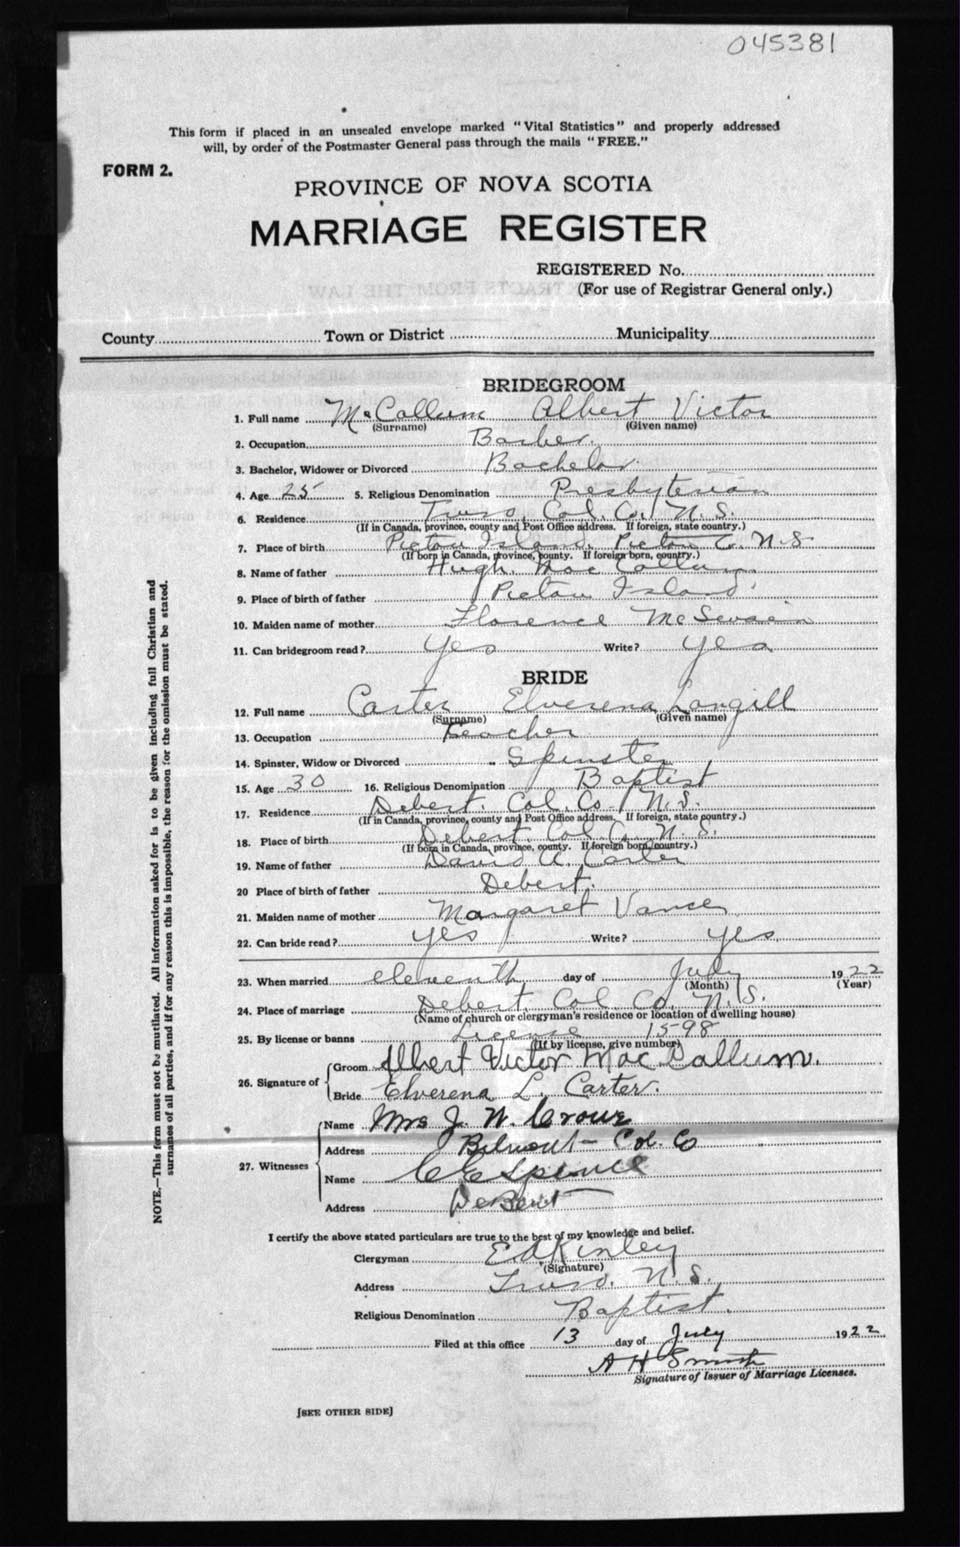 045381
This form if placed in an unsealed envelope marked "Vital Statistics" and properly addressed
will, by order of the Postmaster General pass through the mails "FREE."
FORM 2.
PROVINCE OF NOVA SCOTIA
MARRIAGE REGISTER
REGISTERED No.
(For use of Registrar General only.)
County Town or District Municipality
BRIDEGROOM
1. Full name McCallum Albert Victor
(Surname) (Given name)
2. Occupation Barber.
3. Bachelor, Widower or Divorced Bachelor
4. Age 25 5. Religious Denomination Presbyterian
6. Residence Truro, Col. Co. N. S.
(If in Canada, province, county and Post Office address. If foreign, state country.)
7. Place of birth Pictou Island. Pictou Co. N. S
(If born in Canada, province, county. If foreign born, country.)
8. Name of father Hugh MacCallum
9. Place of birth of father Pictou Island
10. Maiden name of mother Florence McSwain
11. Can bridegroom read? Yes Write? Yes
BRIDE
12. Full name Carter Elverena Langill
(Surname) (Given name)
13. Occupation Teacher
14. Spinster, Widow or Divorced Spinster
15. Age 30 16. Religious Denomination Baptist
17. Residence Debert. Col. Co. N. S.
(If in Canada, province, county and Post Office address. If foreign, state country.)
18. Place of birth Debert. Col Co. N. S.
(If born in Canada, province, county. If foreign born, country.)
19. Name of father David A. Carter
20 Place of birth of father Debert.
21. Maiden name of mother Margaret Vance
22. Can bride read? yes Write? yes
23. When married eleventh day of July 1922
(Month) (Year)
24. Place of marriage Debert, Col Co. N. S.
(Name of church or clergyman's residence or location of dwelling house)
25. By license or banns License 1598
(If by license, give number)
26. Signature of Groom Albert Victor MacCallum.
Bride Elverena L. Carter.
27. Witnesses Name Mrs J. W. Crowe
Address Belmont - Col. Co
Name C E Spence
Address DeBert
I certify the above stated particulars are true to the best of my knowledge and belief.
Clergyman E A Kinley
(Signature)
Address Truro, N. S.
Religious Denomination Baptist.
Filed at this office 13 day of July 1922
A H Smith
Signature of Issuer of Marriage Licenses.
[SEE OTHER SIDE]
NOTE.—This form must not be mutilated. All information asked for is to be given including full Christian and
surnames of all parties, and if for any reason this is impossible, the reason for the omission must be stated.